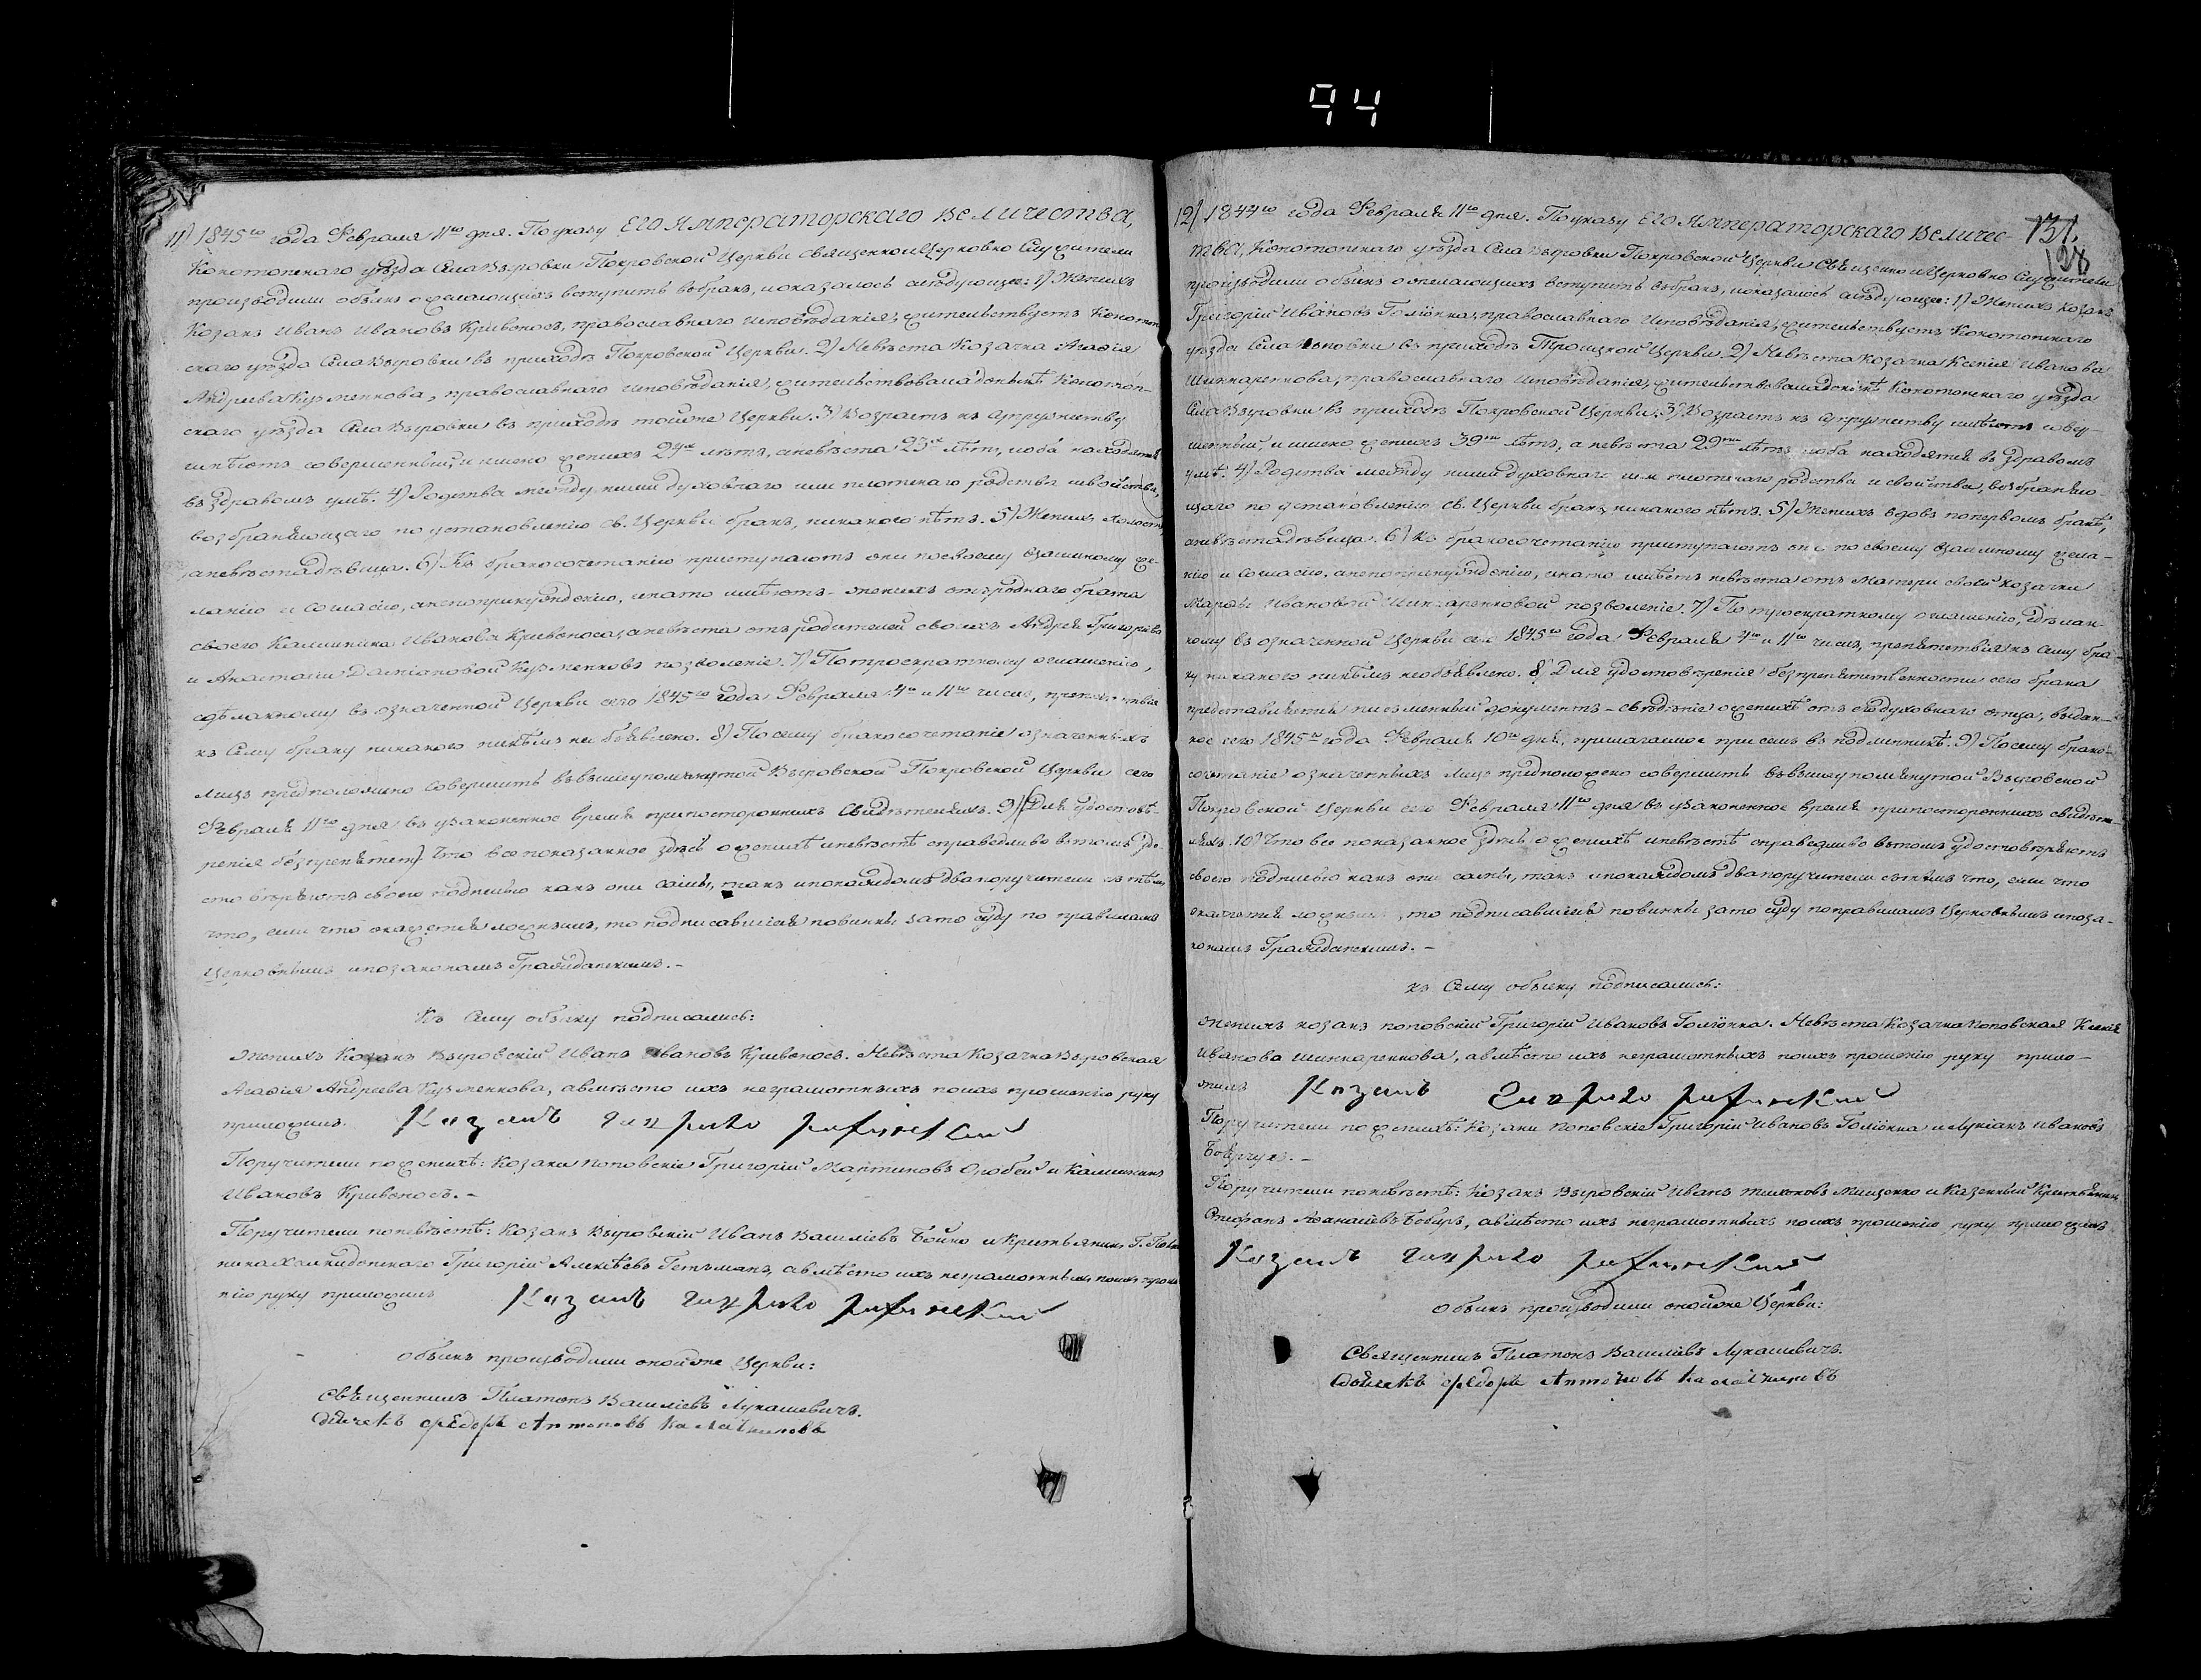 94
11) 1845го года Февраля 11го дня. По указу Его Императорскаго Величества,
Конотопскаго уѣзда Села Выровки Покровской Церкви священно и Церковно Служители
производили обыскъ о желающихъ вступить въ бракъ, и оказалось слѣдующее: 1) Женихъ
Козакъ Иванъ Ивановъ Кривоносъ, православнаго исповѣданія, жительствуетъ Конотоп
скаго уѣзда Села Выровки въ приходѣ Покровской Церкви. 2) Невѣста Козачка Агафія
Андреева Кузменкова, православнаго исповѣданія, жительствовала донынѣ Конотоп-
скаго уѣзда Села Выровки въ приходѣ тойже Церкви. 3) Возрастъ къ супружеству
имѣютъ совершенный, и имено женихъ 24 лѣтъ, а невѣста 23 лѣт, и оба находятся
въ здравомъ умѣ. 4) Родства между ними духовнаго или плотскаго родства и свойства,
возбраняющаго по установленію св. Церкви бракъ, никакого нѣтъ. 5) Женихъ холостъ,
а невѣста дѣвица. 6) Къ бракосочетанію приступаютъ они по своему взаимному же-
ланію и согласію, а не по принужденію, и на то имѣютъ - женихъ отъ роднаго брата
своего Калиника Иванова Кривоноса, а невѣста отъ родителей своихъ Андрея Григорьева
и Анастасіи Даміановой Кузменковъ позволеніе. 7) По троекратному оглашенію,
сдѣланному въ означенной Церкви сего 1845го года Февраля 4го и 11го числъ, препятствія
къ сему браку никакого никѣмъ не объявлено. 8) По сему бракосочетаніе означенныхъ
лицъ предположено совершить въ вышеупомянутой Выровской Покровской Церкви сего
Февраля 11го дня въ узаконенное время при постороннихъ свидѣтеляхъ. 9) (Для удостовѣ-
ренія безпрепятст) Что все показанное здѣсь о женихѣ и невѣстѣ справедливо въ томъ удо-
стовѣряютъ своею подписью какъ они сами, такъ и по каждомъ два поручители съ тѣмъ
что, если что окажется ложнымъ, то подписавшіеся повинны за то суду по правиламъ
Церковнымъ и по законамъ Гражданскимъ.-
Къ Сему обыску подписались:
Женихъ Козакъ Выровскій Иванъ Ивановъ Кривоносъ. Невѣста Козачка Выровская
Агафія Андреева Кузменкова, а вмѣсто ихъ неграмотныхъ по ихъ прошенію руку
приложилъ. Козакъ
Поручители по женихѣ: Козаки Поповскіе Григорій Мартиновъ и Калиникъ
Ивановъ Кривоносъ.-
Поручители по невѣстѣ: Козакъ Выровскій Иванъ Василіевъ Бойко и Крестьянинъ Г. Полков
ника Григорій Алексѣевъ Гетьманъ, а вмѣсто ихъ неграмотныхъ по ихъ проше
нію руку приложилъ Козакъ
Обыскъ производили онойже Церкви:
Священникъ Платонъ Василіевъ Лукашевичъ.
Дьячекъ Федоръ Антоновъ
131.
128
12) 1844го года Февраля 11го дня. По указу Его Императорскаго Величес-
тва, Конотопскаго уѣзда Села Выровки Покровской Церкви Священно и Церковно Служители
производили обыскъ о желающихъ вступить въ бракъ, и оказалось слѣдующее: 1) Женихъ Козакъ
Григорій Ивановъ Голіонка, православнаго исповѣданія, жительствуетъ Конотопскаго
уѣзда Села Поповки въ приходѣ Троицкой Церкви. 2) Невѣста Козачка Ксенія Иванова
Шинкаренкова, православнаго исповѣданія, жительствовала донынѣ Конотопскаго уѣзда
Села Выровки въ приходѣ Покровской Церкви. 3) Возрастъ къ супружеству имѣютъ совер-
шенный, и имено женихъ 39 лѣтъ, а невѣста 29 лѣтъ, и оба находятся въ здравомъ
умѣ. 4) Родства между ними духовнаго или плотскаго родства и свойства, возбраняю-
щаго по установленію св. Церкви бракъ, никакого нѣтъ. 5) Женихъ вдовъ по первомъ бракѣ,
а невѣста дѣвица. 6) Къ бракосочетанію приступаютъ они по своему взаимному жела-
нію и согласію, а не по принужденію, и на то имѣетъ невѣста отъ матери своей козачки
Марфы Ивановой Шинкаренковой позволеніе. 7) По троекратному оглашенію, сдѣлан-
ному въ означенной Церкви сего 1845го года Февраля 4го и 11го числъ, препятствія къ сему бра-
ку никакого никѣмъ не объявлено. 8) Для удостовѣренія безпрепятственности сего брака
представляется письменный документъ - свѣдѣніе о женихѣ отъ его духовнаго отца, выдан-
ное сего 1845го года Февраля 10го дня, прилагаемое при семъ въ подлинникѣ. 9) По сему брако-
сочетаніе означенныхъ лицъ предположено совершить въ вышеупомянутой Выровской
Покровской Церкви сего Февраля 11го дня въ узаконенное время при постороннихъ свидѣте-
ляхъ. 10) Что все показанное здѣсь о женихѣ и невѣстѣ справедливо въ томъ удостовѣряютъ
своею подписью какъ они сами, такъ и по каждомъ два поручители съ тѣмъ что, если что
окажется ложнымъ, то подписавшіеся повинны за то суду по правиламъ Церковнымъ и по за-
конамъ Гражданскимъ.-
къ Сему обыску подписались:
Женихъ козакъ поповскій Григорій Ивановъ Голіонка. Невѣста Козачка Поповская Ксенія
Иванова Шинкаренкова, а вмѣсто ихъ неграмотныхъ по ихъ прошенію руку прило-
жилъ Козакъ
Поручители по женихѣ: Козаки Поповскіе Григорій Ивановъ Голіонка и Лукіанъ Ивановъ
Поручители по невѣстѣ: Козакъ Выровскій Иванъ Тихоновъ Мищенко и Казенный Крестьянинъ
Стефанъ Афанасіевъ Бобыръ, а вмѣсто ихъ неграмотныхъ по ихъ прошенію руку приложилъ
Козакъ
Обыскъ производили онойже Церкви:
Священникъ Платонъ Василіевъ Лукашевичъ.
Дьячекъ Федоръ Антоновъ